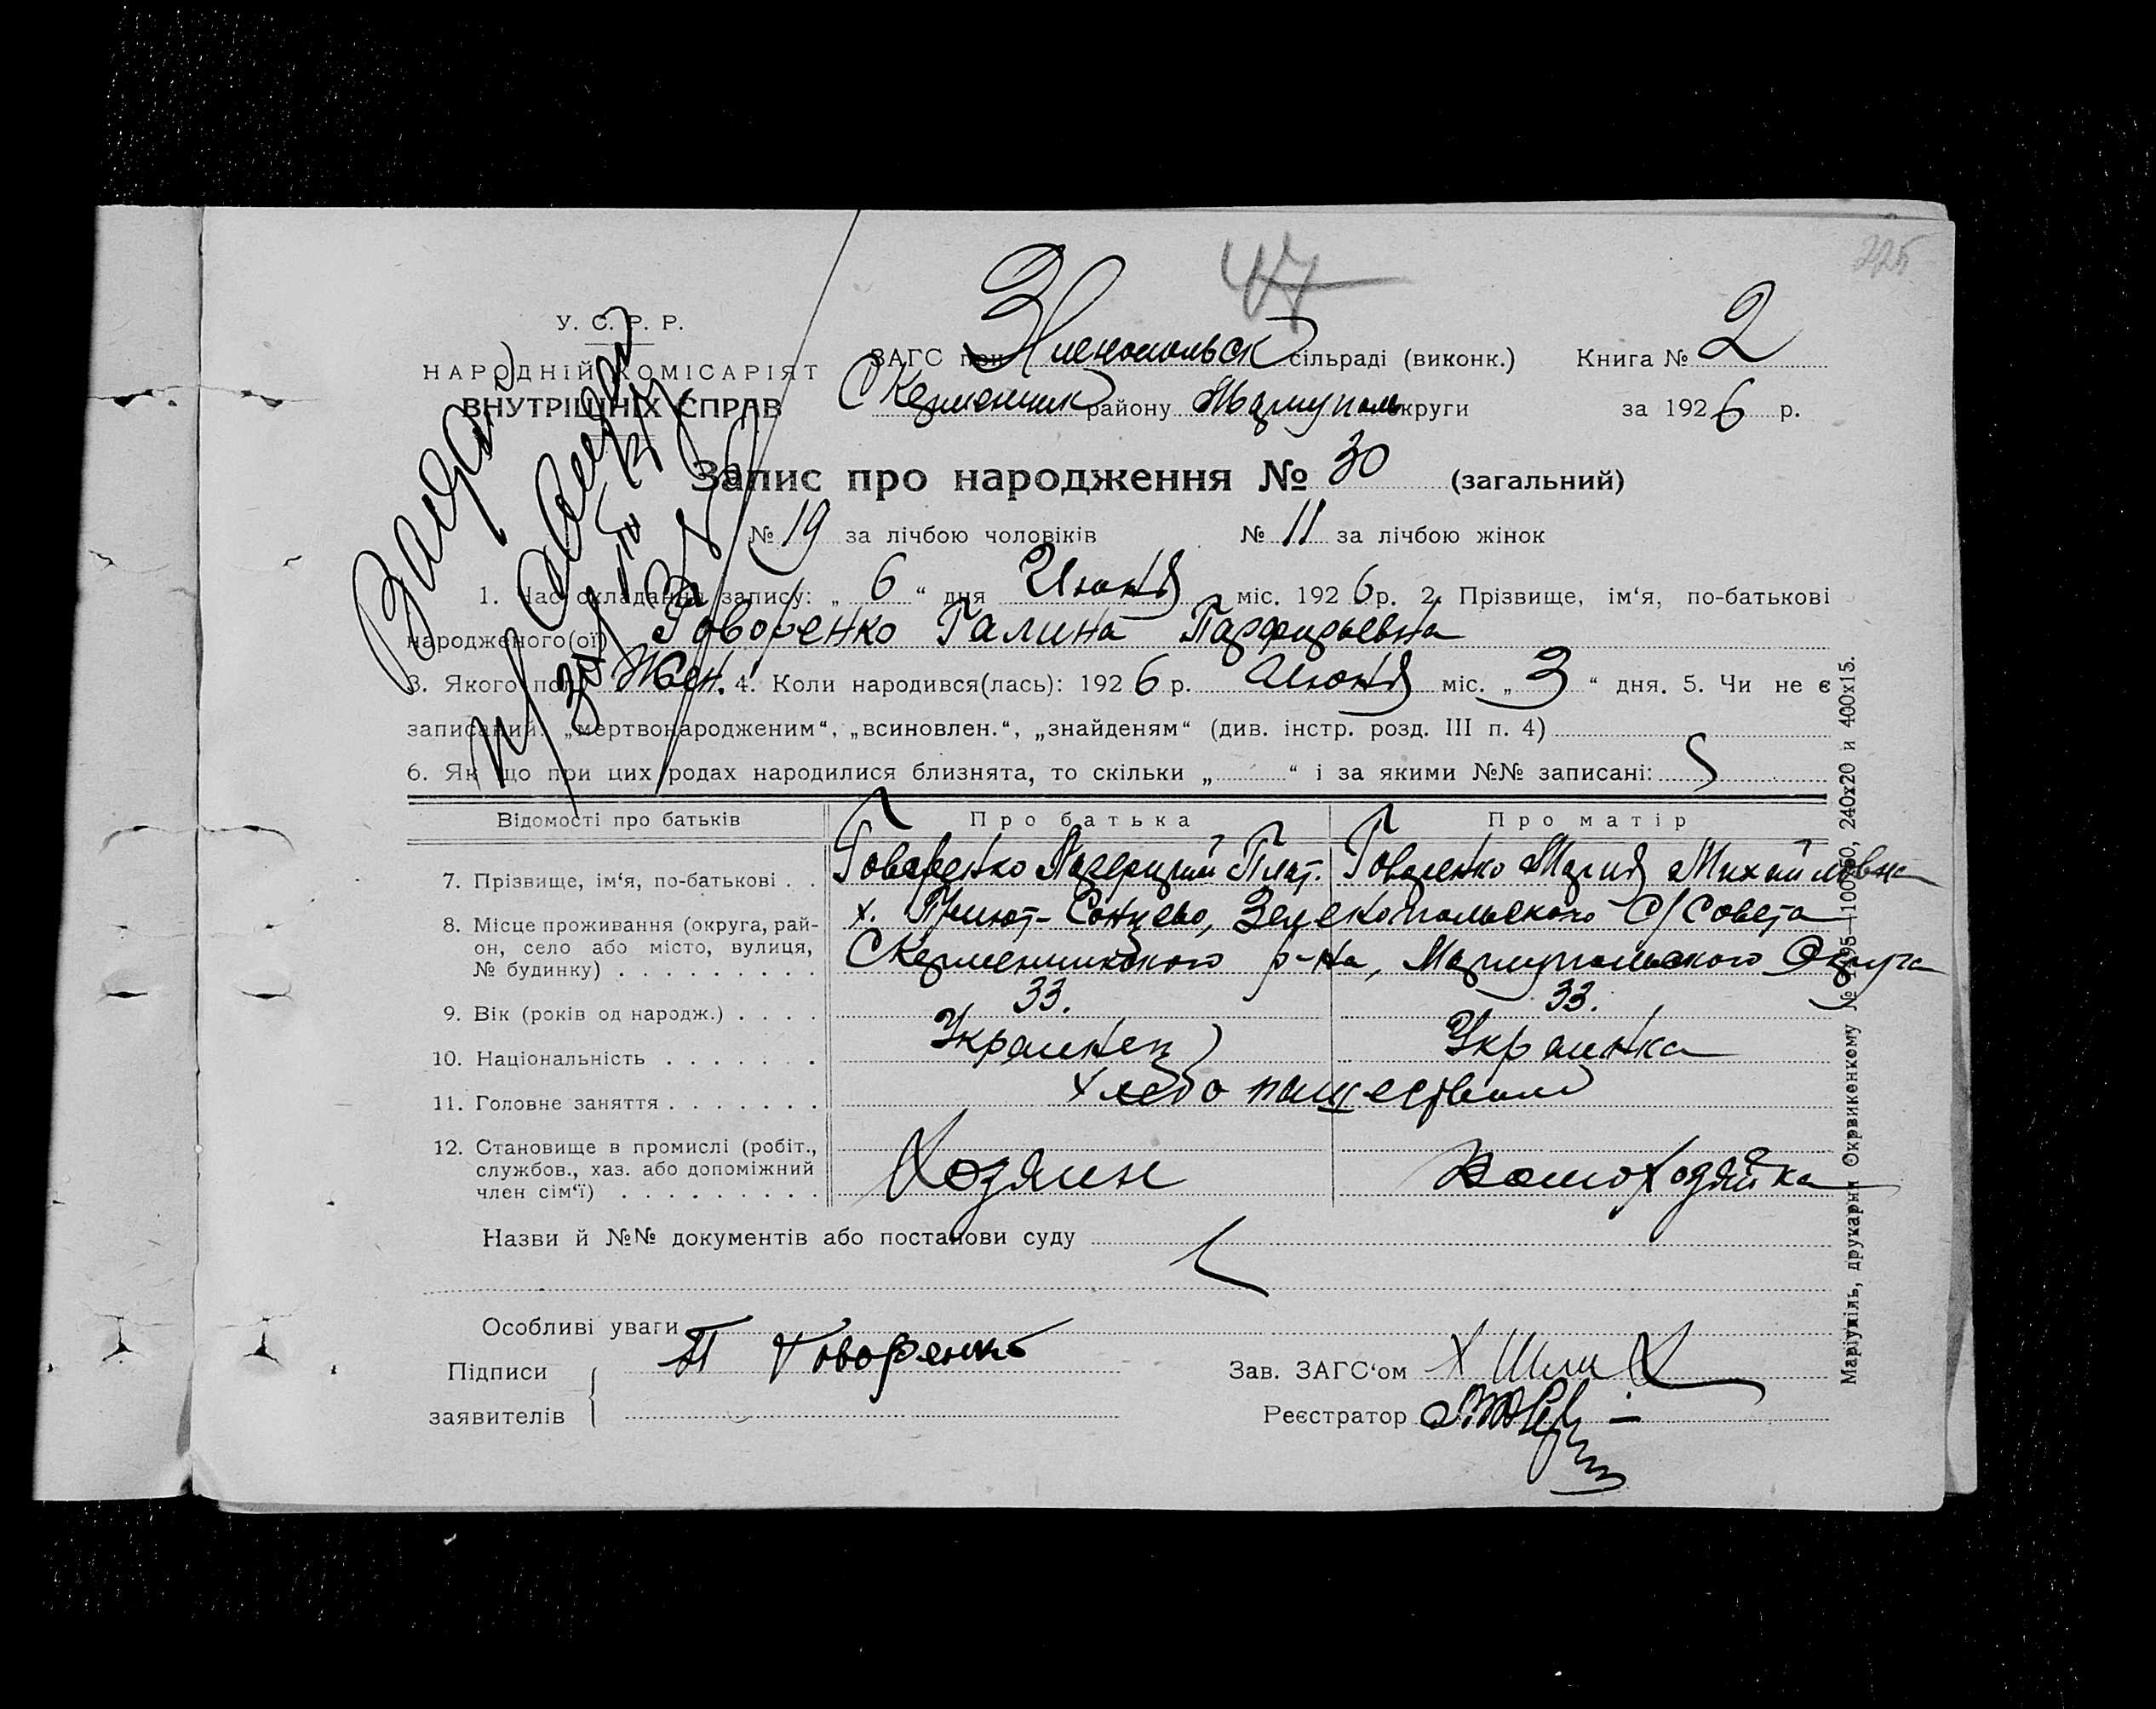 47
225
У. С. Р. Р.
НАРОДНІЙ КОМІСАРІЯТ
ВНУТРІШНІХ СПРАВ
ЗАГС при сільраді (виконк.) Книга № 2
району Мариуполь округи за 1926 р.
Запис про народження № 30 (загальний)
№ 19 за лічбою чоловіків № 11 за лічбою жінок
1. Час складання запису: „ 6 “ дня Июня міс. 1926 р. 2. Прізвище, ім‘я, по-батькові
народженого(ої) Говоренко Галина Парфирьевна
3. Якого полу Жен. 4. Коли народився(лась): 1926 р. Июня міс. „ 3 “ дня. 5. Чи не є
записаний: „мертвонародженим“, „всиновлен.“, „знайденям“ (див. інстр. розд. III п. 4)
6. Як що при цих родах народилися близнята, то скільки „ “ і за якими №№ записані:
Відомості про батьків Про батька Про матір
7. Прізвище, ім‘я, по-батькові . . Говоренко Плат. Говоренко Мария Михайловна
8. Місце проживання (округа, рай-
он, село або місто, вулиця,
№ будинку) . . . . . . . . .
х. Приют-Сонцево, Зеленопольского С/Совета
р-на, Мариупольского Округа
9. Вік (років од народж.) . . . . 33. 33.
10. Національність . . . . . . . Украинец Украинка
11. Головне заняття . . . . . . . хлебопашеством
12. Становище в промислі (робіт.,
службов., хаз. або допоміжний
член сім‘ї) . . . . . . . . .
Хозяин Домохозяйка
Назви й №№ документів або постанови суду
Особливі уваги
Підписи
заявителів
П Говоренко
Зав. ЗАГС‘ом
Реєстратор
Маріупіль, друкарня Окрвиконкому 240х20 и 400х15.